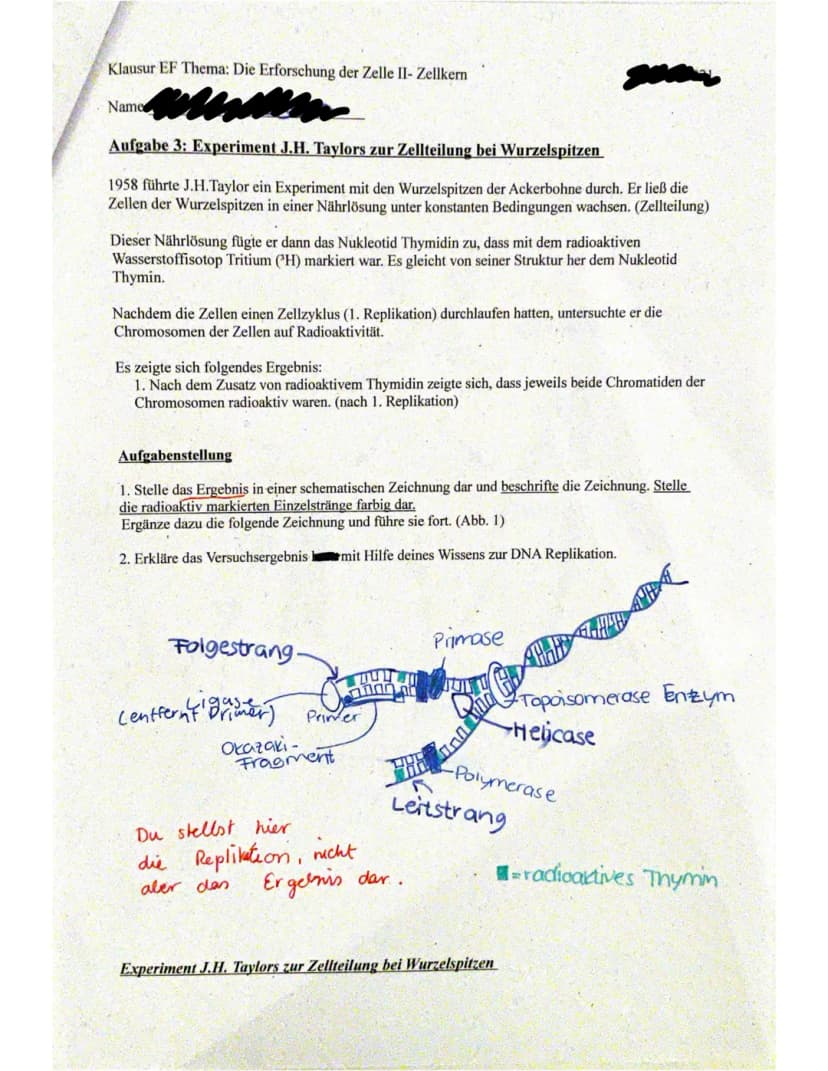 Klausur EF Thema: Die Erforschung der Zelle II- Zellkern
Name
Aufgabe 3: Experiment J.H. Taylors zur Zellteilung bei Wurzelspitzen
1958 führte J.H.Taylor ein Experiment mit den Wurzelspitzen der Ackerbohne durch. Er ließ die
Zellen der Wurzelspitzen in einer Nährlösung unter konstanten Bedingungen wachsen. (Zellteilung)
Dieser Nährlösung fügte er dann das Nukleotid Thymidin zu, dass mit dem radioaktiven
Wasserstoffisotop Tritium (³H) markiert war. Es gleicht von seiner Struktur her dem Nukleotid
Thymin.
Nachdem die Zellen einen Zellzyklus (1. Replikation) durchlaufen hatten, untersuchte er die
Chromosomen der Zellen auf Radioaktivität.
Es zeigte sich folgendes Ergebnis:
1. Nach dem Zusatz von radioaktivem Thymidin zeigte sich, dass jeweils beide Chromatiden der
Chromosomen radioaktiv waren. (nach 1. Replikation)
Aufgabenstellung
1. Stelle das Ergebnis in einer schematischen Zeichnung dar und beschrifte die Zeichnung. Stelle
die radioaktiv markierten Einzelstränge farbig dar.
Ergänze dazu die folgende Zeichnung und führe sie fort. (Abb. 1)
2. Erkläre das Versuchsergebnis mit Hilfe deines Wissens zur DNA Replikation.
Primase
Folgestrang
Topoisomerase Enzym
Ligase
(entfernt Primer)
Primer
Helicase
Okazaki-
Fragment
Polymerase
Leitstrang
Du stellst hier
die Replikation, nicht
aber das Ergebnis dar.
=radioaktives Thymin
Experiment J.H. Taylors zur Zellteilung bei Wurzelspitzen